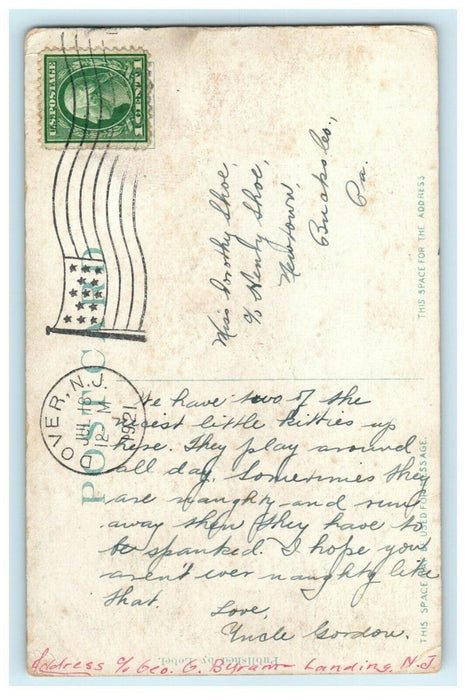 U.S. POSTAGE
1 CENT 1
DOVER, N.J.
JUL 18
12 M
1921
POST CARD
Miss Dorothy Shoe,
c/o Henry Shoe,
Newtown,
Bucks Co.,
Pa.
THIS SPACE FOR THE ADDRESS
We have two of the
nicest little kitties up
here. They play around
all day. Sometimes they
are naughty and run
away then they have to
be spanked. I hope you
aren't ever naughty like
that.
Love,
Uncle Gordon.
THIS SPACE MAY BE USED FOR MESSAGE.
Published by Lobel
Address c/o Geo. G. Byram Landing, N.J.